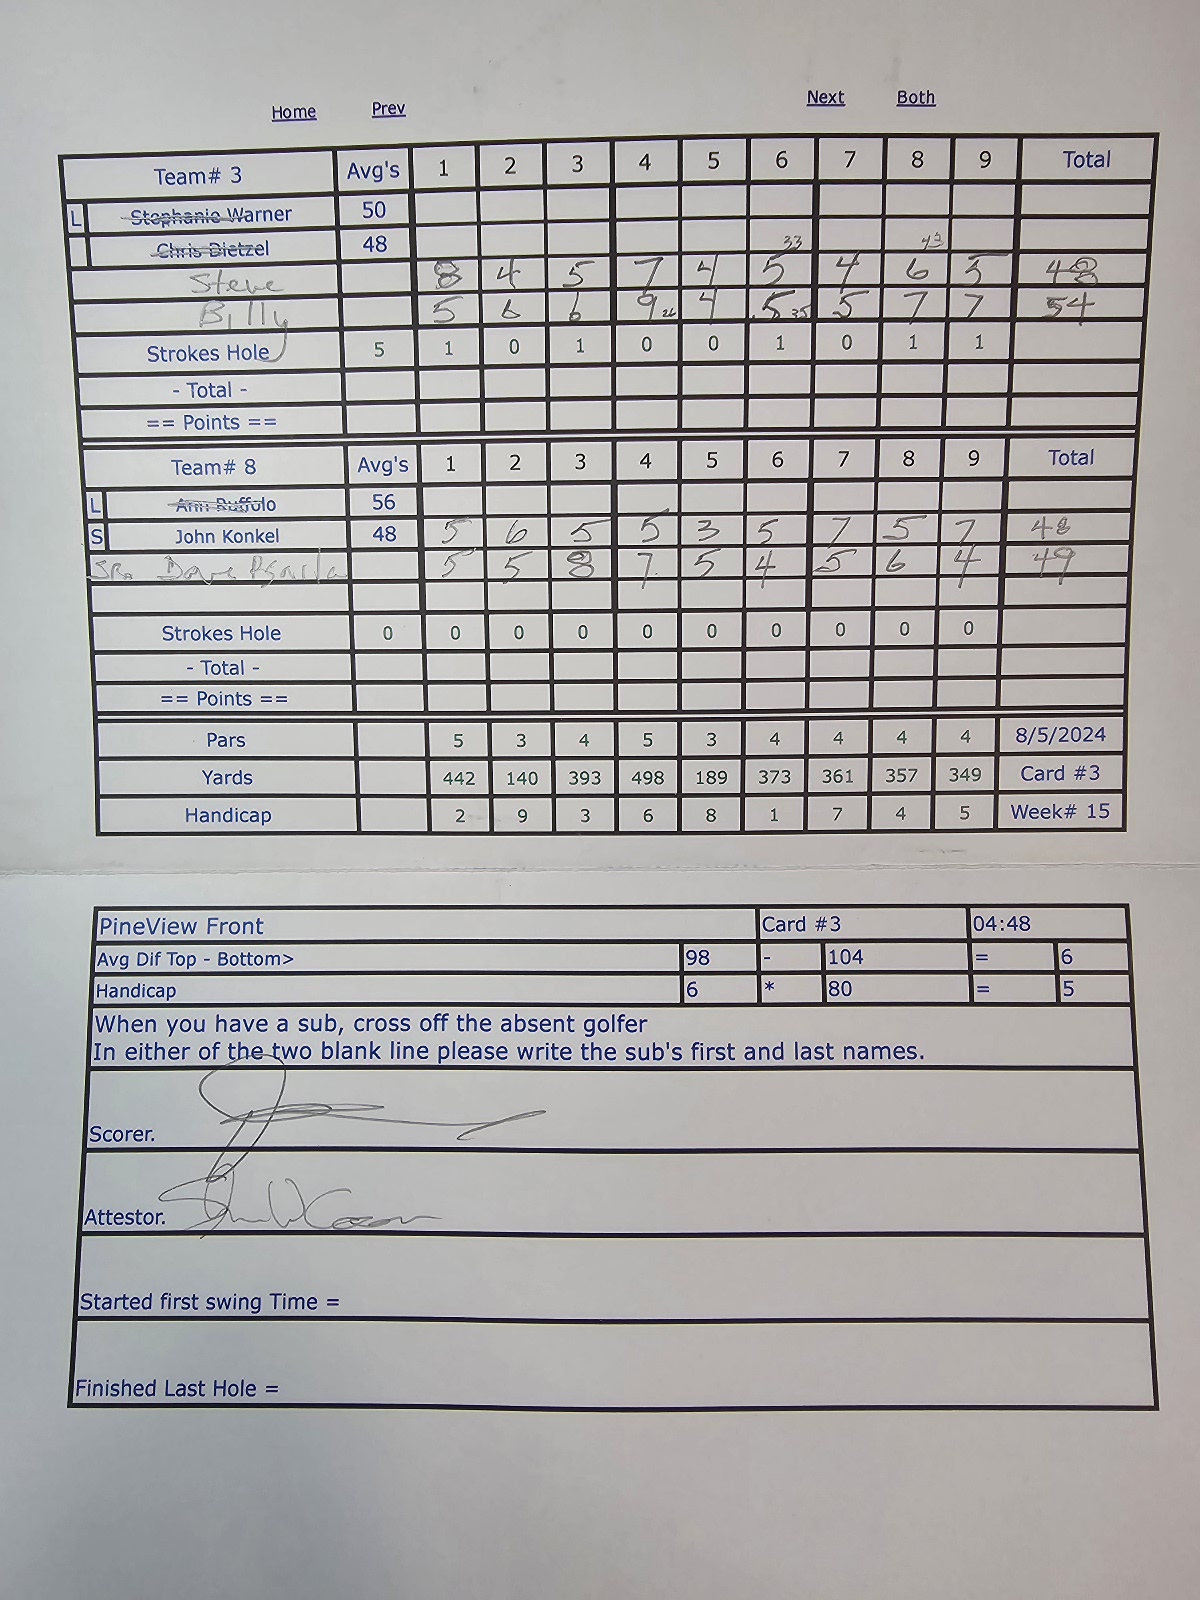 Home Prev Next Both
Team# 3 Avg's 1 2 3 4 5 6 7 8 9 Total
L Stephanie Warner 50
Chris Dietzel 48 33 43
Steve 8 4 5 7 4 5 4 6 5 48
Billy 5 6 6 9 4 5 5 7 7 54
Strokes Hole 5 1 0 1 0 0 1 0 1 1
- Total -
== Points ==
Team# 8 Avg's 1 2 3 4 5 6 7 8 9 Total
L Ann Ruffolo 56
S John Konkel 48 5 6 5 5 3 5 7 5 7 48
Dave 5 5 8 7 5 4 5 6 4 49
Strokes Hole 0 0 0 0 0 0 0 0 0 0
- Total -
== Points ==
Pars 5 3 4 5 3 4 4 4 4 8/5/2024
Yards 442 140 393 498 189 373 361 357 349 Card #3
Handicap 2 9 3 6 8 1 7 4 5 Week# 15
PineView Front Card #3 04:48
Avg Dif Top - Bottom> 98 - 104 = 6
Handicap 6 * 80 = 5
When you have a sub, cross off the absent golfer
In either of the two blank line please write the sub's first and last names.
Scorer.
Attestor.
Started first swing Time =
Finished Last Hole =